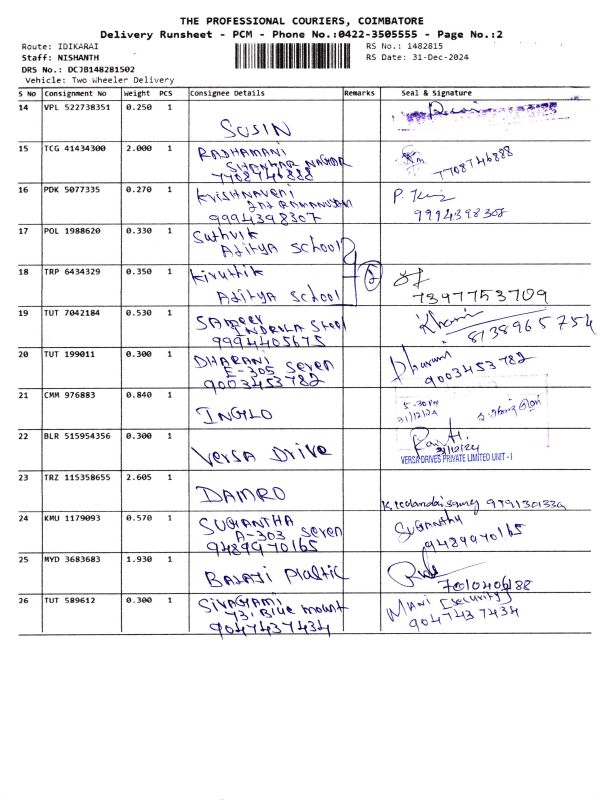 THE PROFESSIONAL COURIERS, COIMBATORE
Delivery Runsheet - PCM - Phone No.:0422-3505555 - Page No.:2
Route: IDIKARAI
RS No.: 1482815
Staff: NISHANTH
RS Date: 31-Dec-2024
DRS No.: DCJB148281502
Vehicle: Two Wheeler Delivery
S No Consignment No Weight PCS Consignee Details Remarks Seal & Signature
14 VPL 522738351 0.250 1
SUSIN
15 TCG 41434300 2.000 1 RADHAMANI
SHANKAR NAGAR
7708746888 7708746888
16 PDK 5077335 0.270 1 KRISHNAVENI
9994398307 9994398308
17 POL 1988620 0.330 1 Suthvik
Aditya School
18 TRP 6434329 0.350 1 Kiruthik
Aditya School 2
7397753709
19 TUT 7042184 0.530 1 SAMEER
9994405675 8138965754
20 TUT 199011 0.300 1 DHARANI Dharani
E-305 Seven
9003453782 9003453782
21 CMM 976883 0.840 1
5-30pm
31/12/24
INGLO
22 BLR 515954356 0.300 1
31/12/24
Versa Drive
VERSA DRIVES PRIVATE LIMITED UNIT - I
23 TRZ 115358655 2.605 1
DAMRO
24 KMU 1179093 0.570 1 SUGANTHA
A-303 Seven
9489970165 9489970165
25 MYD 3683683 1.930 1
Balaji Plastic
26 TUT 589612 0.300 1 SIVAGAMI Mani [Security]
73, Blue mount
9047437434 9047437434